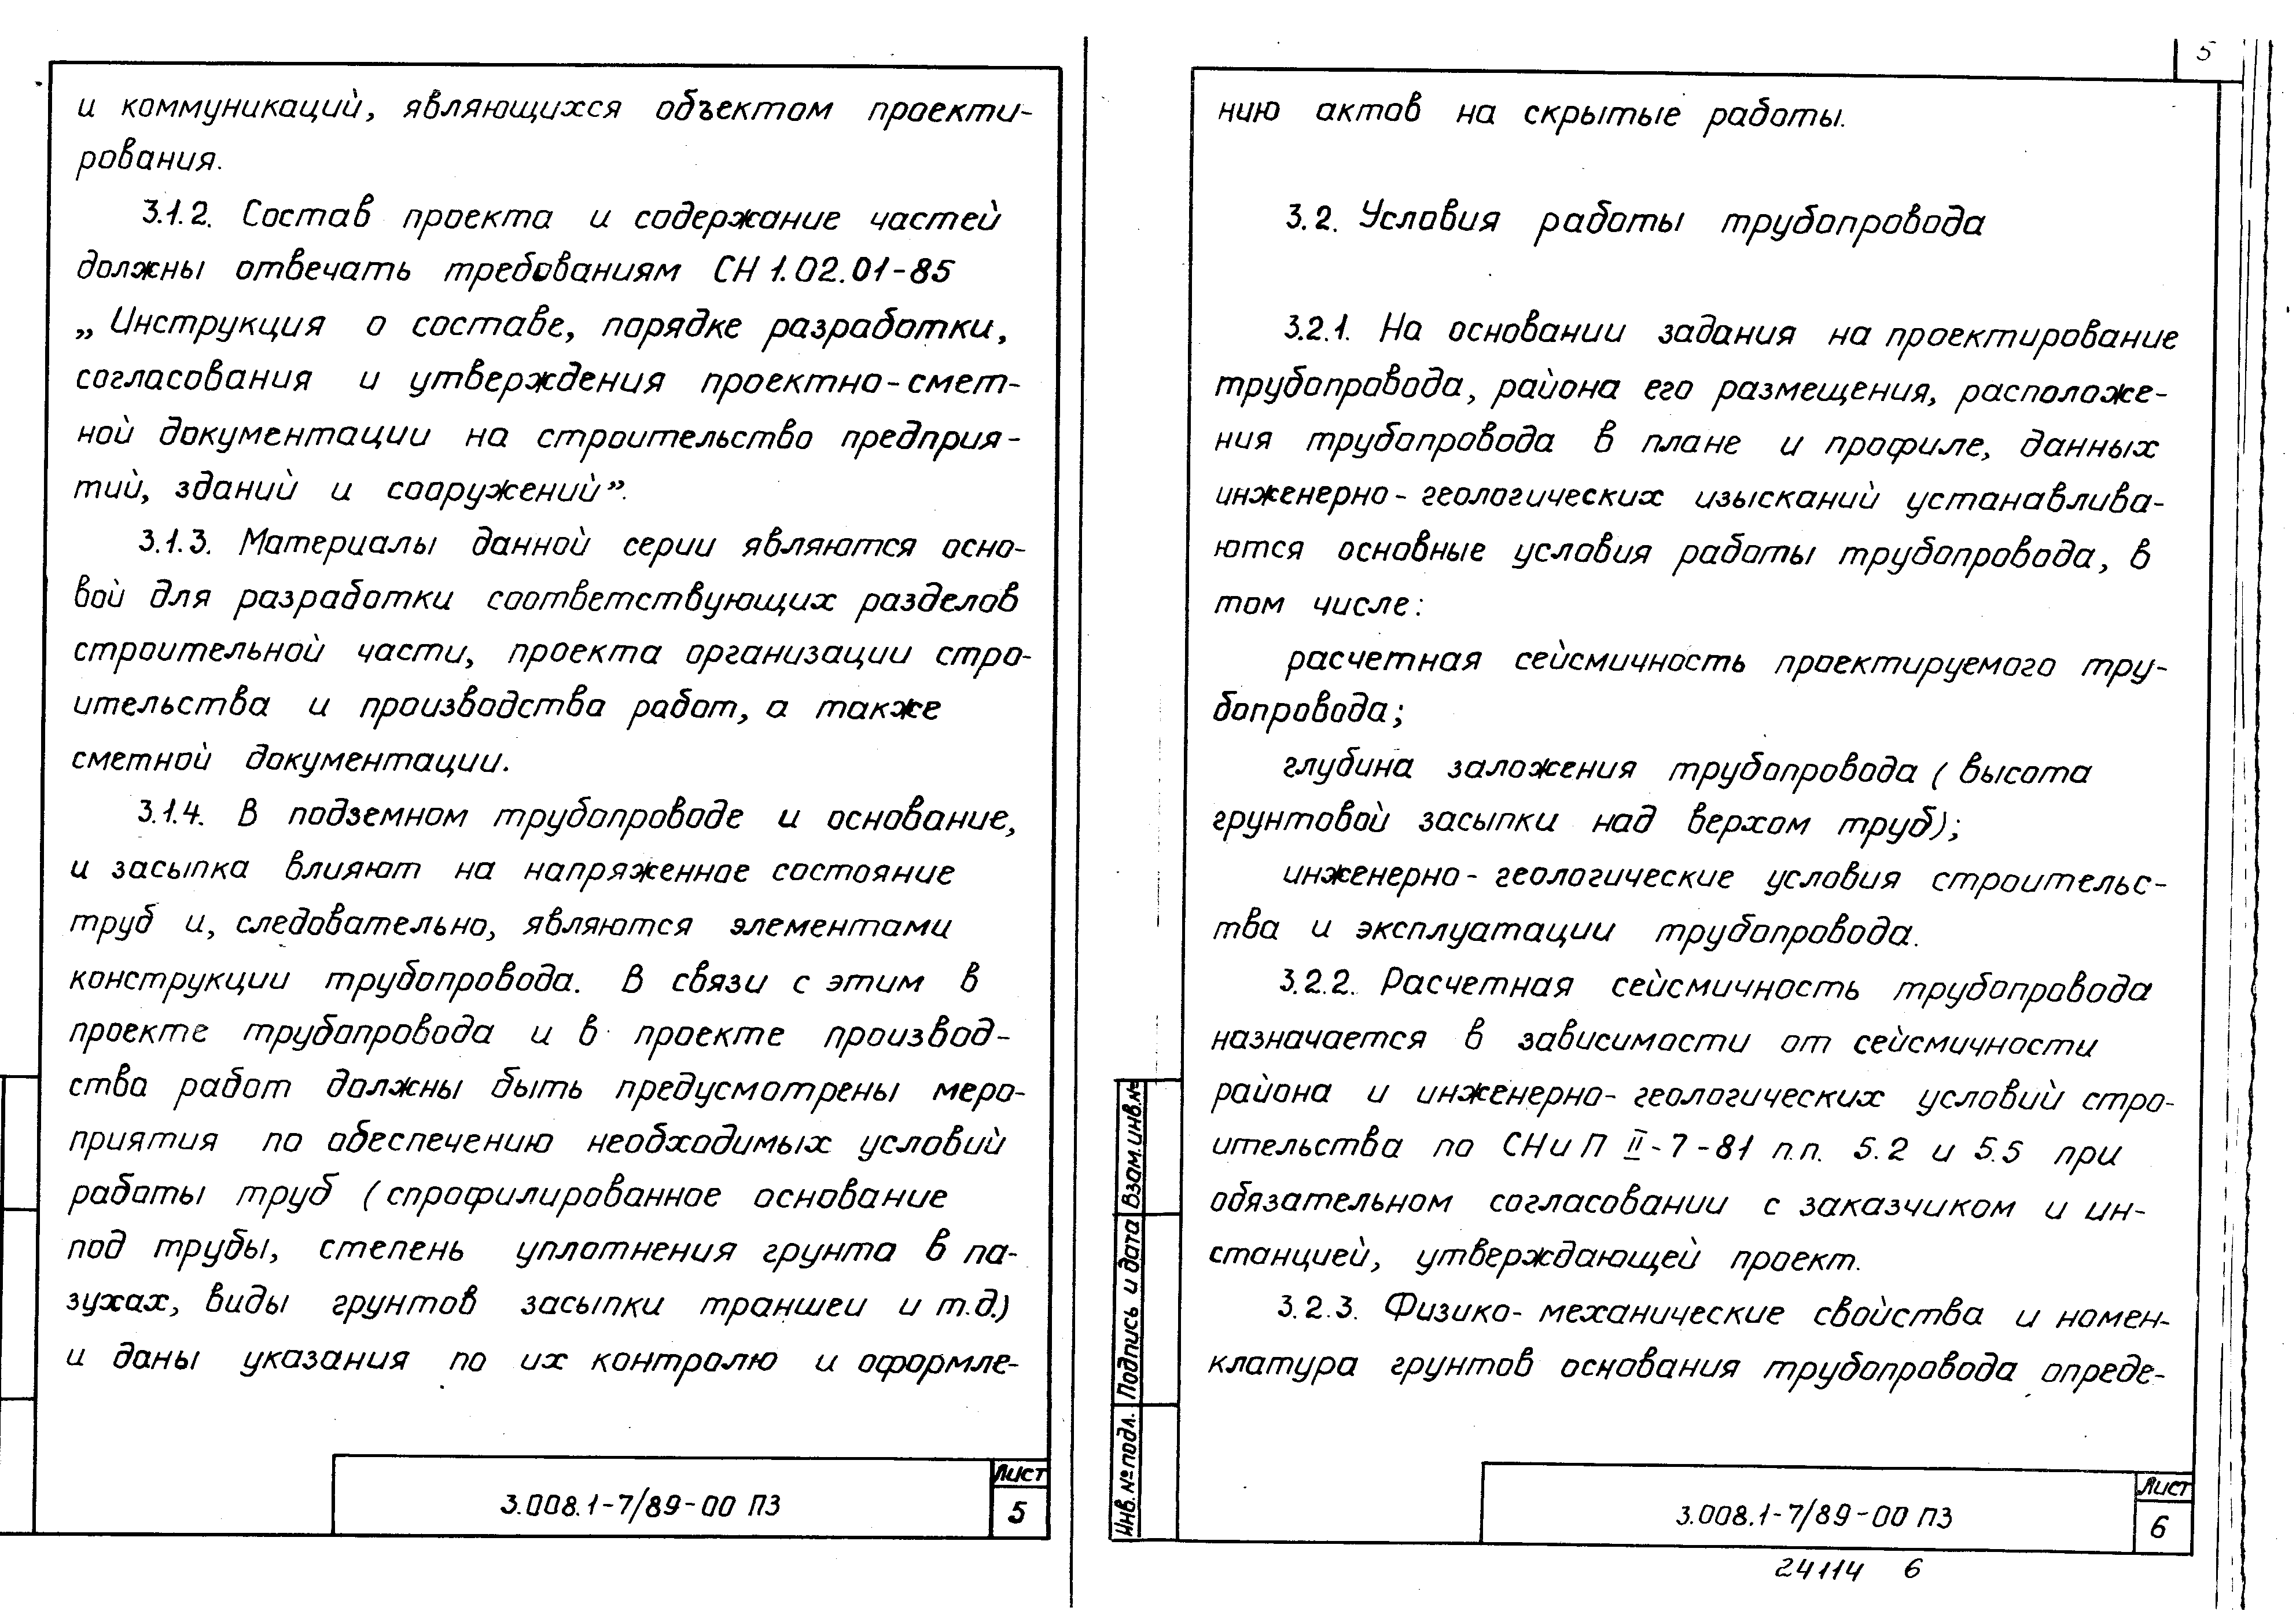 и коммуникаций, являющихся объектом проекти-
рования.
3.1.2. Состав проекта и содержание частей
должны отвечать требованиям СН 1.02.01-85
„Инструкция о составе, порядке разработки,
согласования и утверждения проектно-смет-
ной документации на строительство предприя-
тий, зданий и сооружений”.
3.1.3. Материалы данной серии являются осно-
вой для разработки соответствующих разделов
строительной части, проекта организации стро-
ительства и производства работ, а также
сметной документации.
3.1.4. В подземном трубопроводе и основание,
и засыпка влияют на напряженное состояние
труб и, следовательно, являются элементами
конструкции трубопровода. В связи с этим в
проекте трубопровода и в проекте производ-
ства работ должны быть предусмотрены меро-
приятия по обеспечению необходимых условий
работы труб (спрофилированное основание
под трубы, степень уплотнения грунта в па-
зухах, виды грунтов засыпки траншеи и т.д.)
и даны указания по их контролю и оформле-
3.008.1-7/89-00 ПЗ
Лист
5
5
нию актов на скрытые работы.
3.2. Условия работы трубопровода
3.2.1. На основании задания на проектирование
трубопровода, района его размещения, расположе-
ния трубопровода в плане и профиле, данных
инженерно-геологических изысканий устанавлива-
ются основные условия работы трубопровода, в
том числе:
расчетная сейсмичность проектируемого тру-
бопровода;
глубина заложения трубопровода (высота
грунтовой засыпки над верхом труб);
инженерно-геологические условия строительс-
тва и эксплуатации трубопровода.
3.2.2. Расчетная сейсмичность трубопровода
назначается в зависимости от сейсмичности
района и инженерно-геологических условий стро-
ительства по СНиП II-7-81 п.п. 5.2 и 5.5 при
обязательном согласовании с заказчиком и ин-
станцией, утверждающей проект.
3.2.3. Физико-механические свойства и номен-
клатура грунтов основания трубопровода опреде-
Инв.№подл. Подпись и дата Взам.инв.№
3.008.1-7/89-00 ПЗ
Лист
6
24114 6